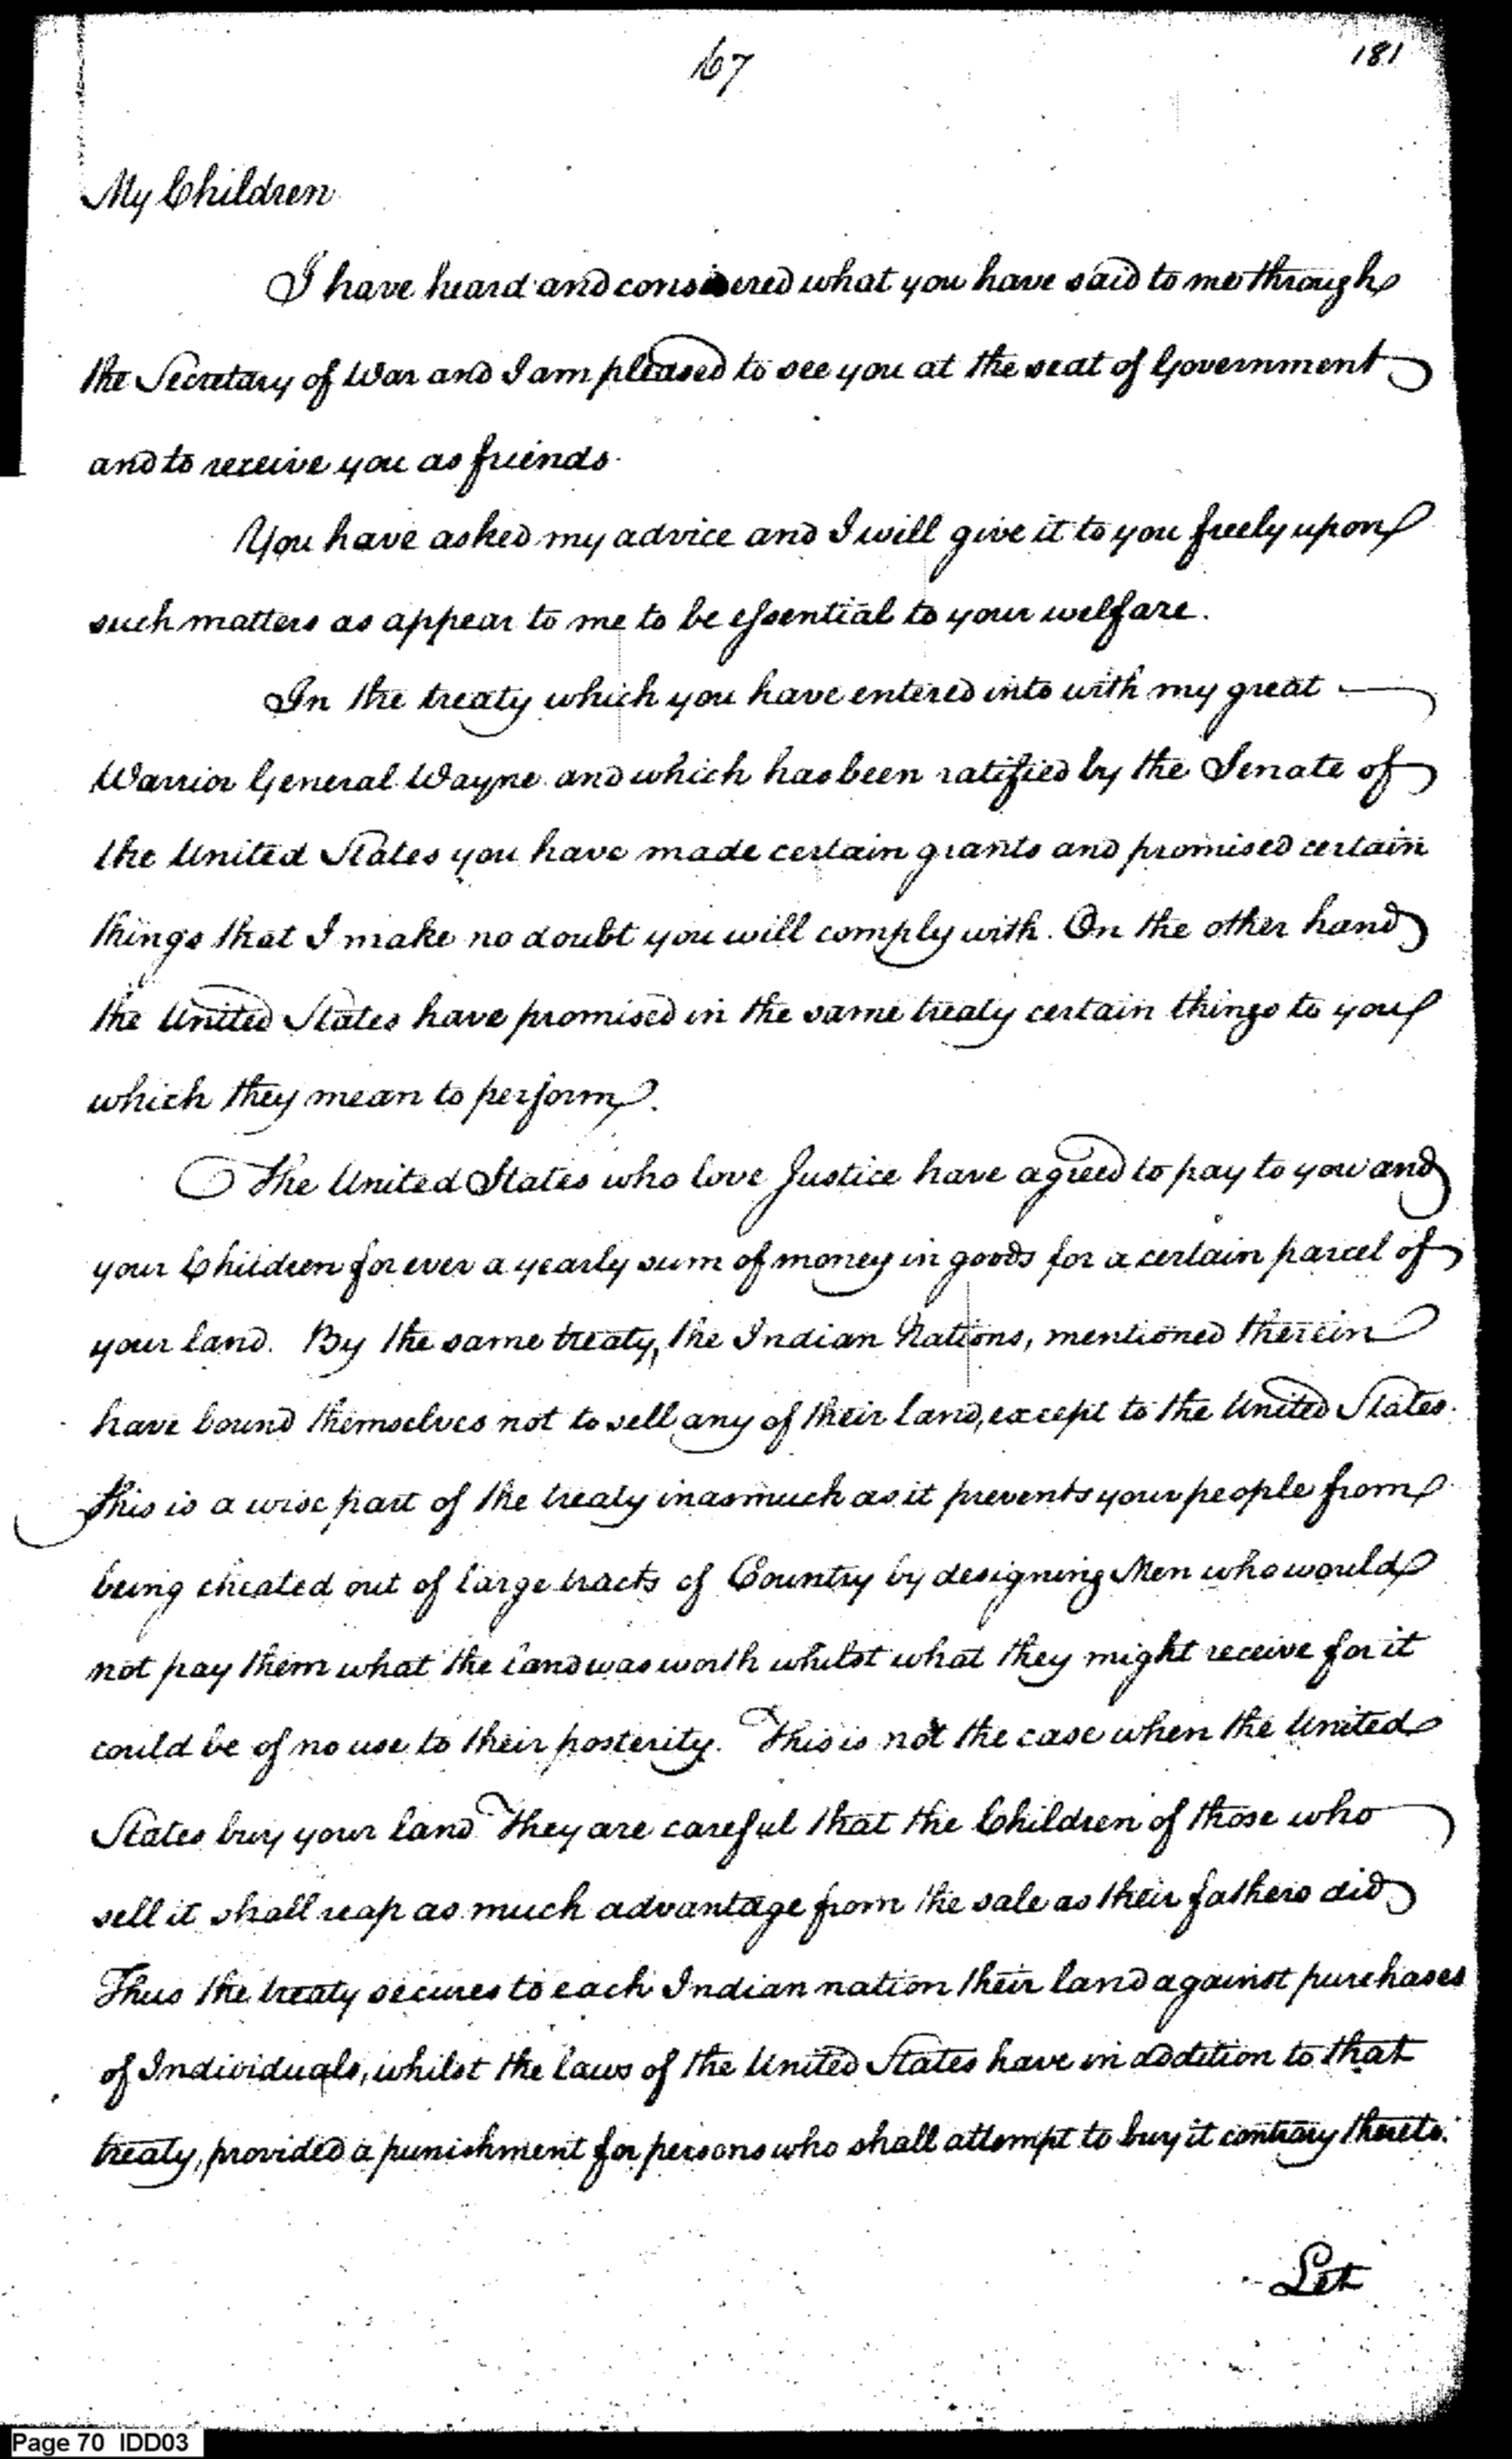 167
181
My Children
I have heard and considered what you have said to me through
the Secretary of War and I am pleased to see you at the seat of Government
and to receive you as friends.
You have asked my advice and I will give it to you freely upon
such matters as appear to me to be essential to your welfare.
In the treaty which you have entered into with my great
Warrior General Wayne and which has been ratified by the Senate of
the United States you have made certain grants and promised certain
things that I make no doubt you will comply with. On the other hand
the United States have promised in the same treaty certain things to you
which they mean to perform.
The United States who love Justice have agreed to pay to you and
your Children for ever a yearly sum of money in goods for a certain parcel of
your land. By the same treaty, the Indian Nations, mentioned therein
have bound themselves not to sell any of their land, except to the United States.
This is a wise part of the treaty inasmuch as it prevents your people from
being cheated out of large tracts of Country by designing Men who would
not pay them what the land was worth whilst what they might receive for it
could be of no use to their posterity. This is not the case when the United
States buy your land They are careful that the Children of those who
sell it shall reap as much advantage from the sale as their fathers did
Thus the treaty secures to each Indian nation their land against purchases
of Individuals, whilst the laws of the United States have in addition to that
treaty, provided a punishment for persons who shall attempt to buy it contrary thereto.
Let
Page 70 IDD03